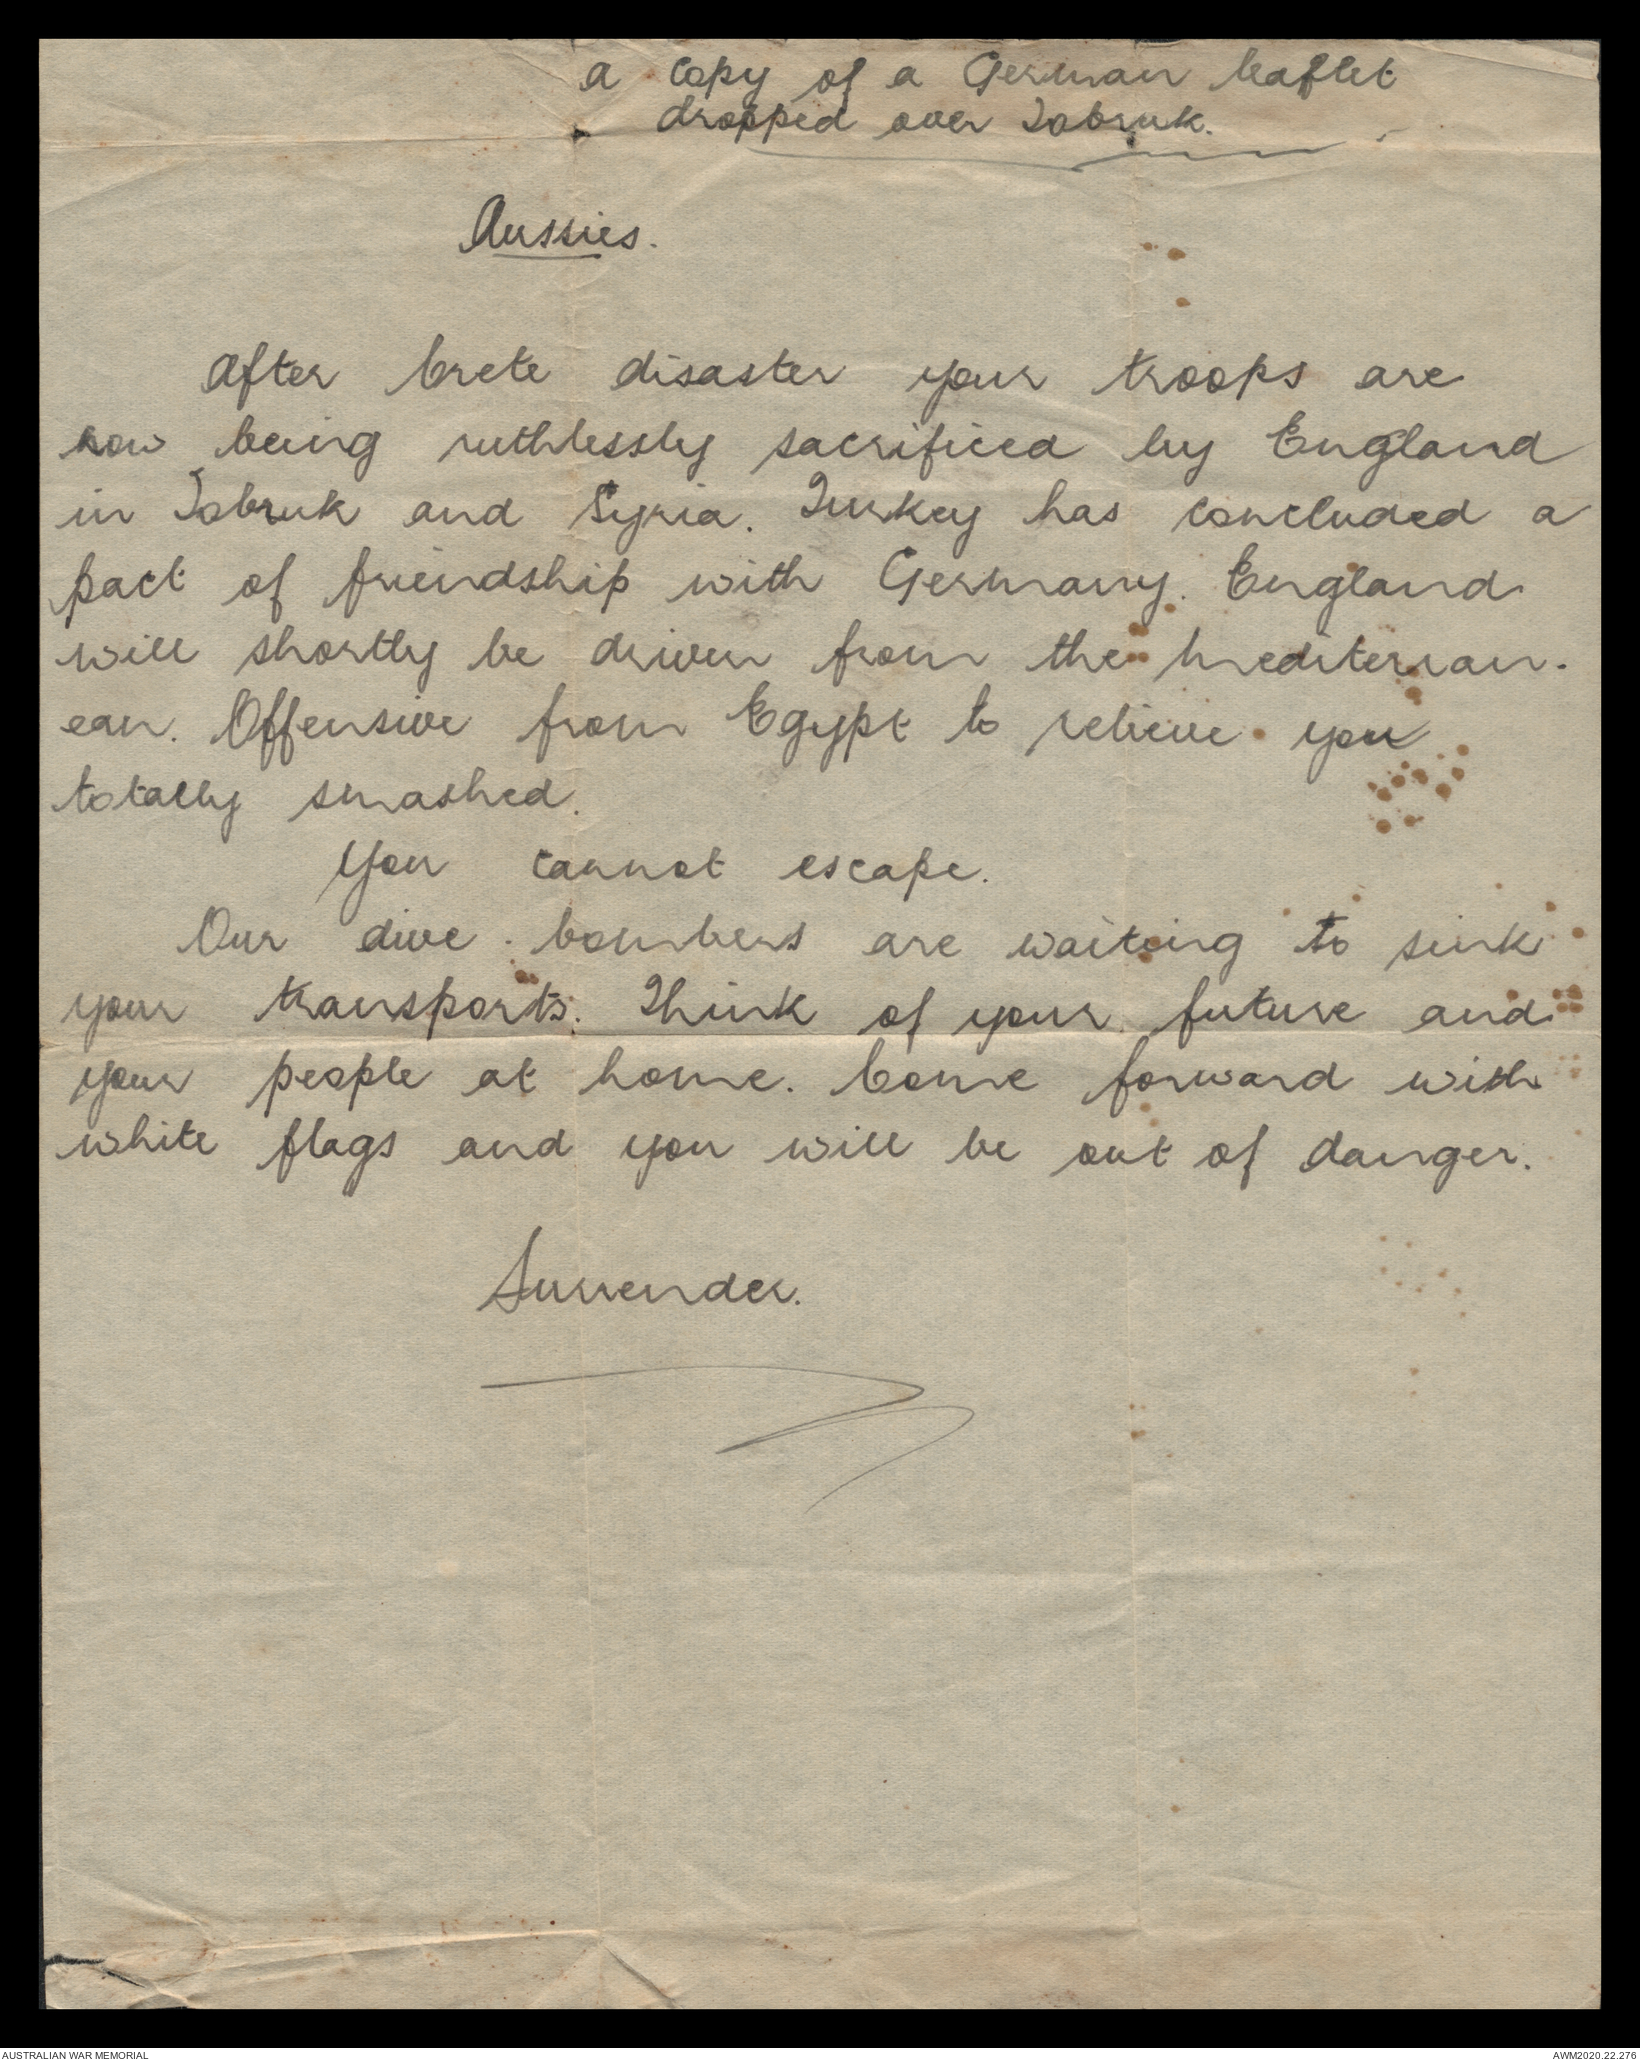 a copy of a German leaflet
dropped over Tobruk.
Aussies.
After Crete disaster your troops are
now being ruthlessly sacrificed by England
in Tobruk and Syria. Turkey has concluded a
pact of friendship with Germany. England
will shortly be driven from the Mediterran-
ean. Offensive from Egypt to relieve you
totally smashed.
You cannot escape.
Our dive bombers are waiting to sink
your transports. Think of your future and
your people at home. Come forward with
white flags and you will be out of danger.
Surrender.
AUSTRALIAN WAR MEMORIAL
AWM2020.22.276